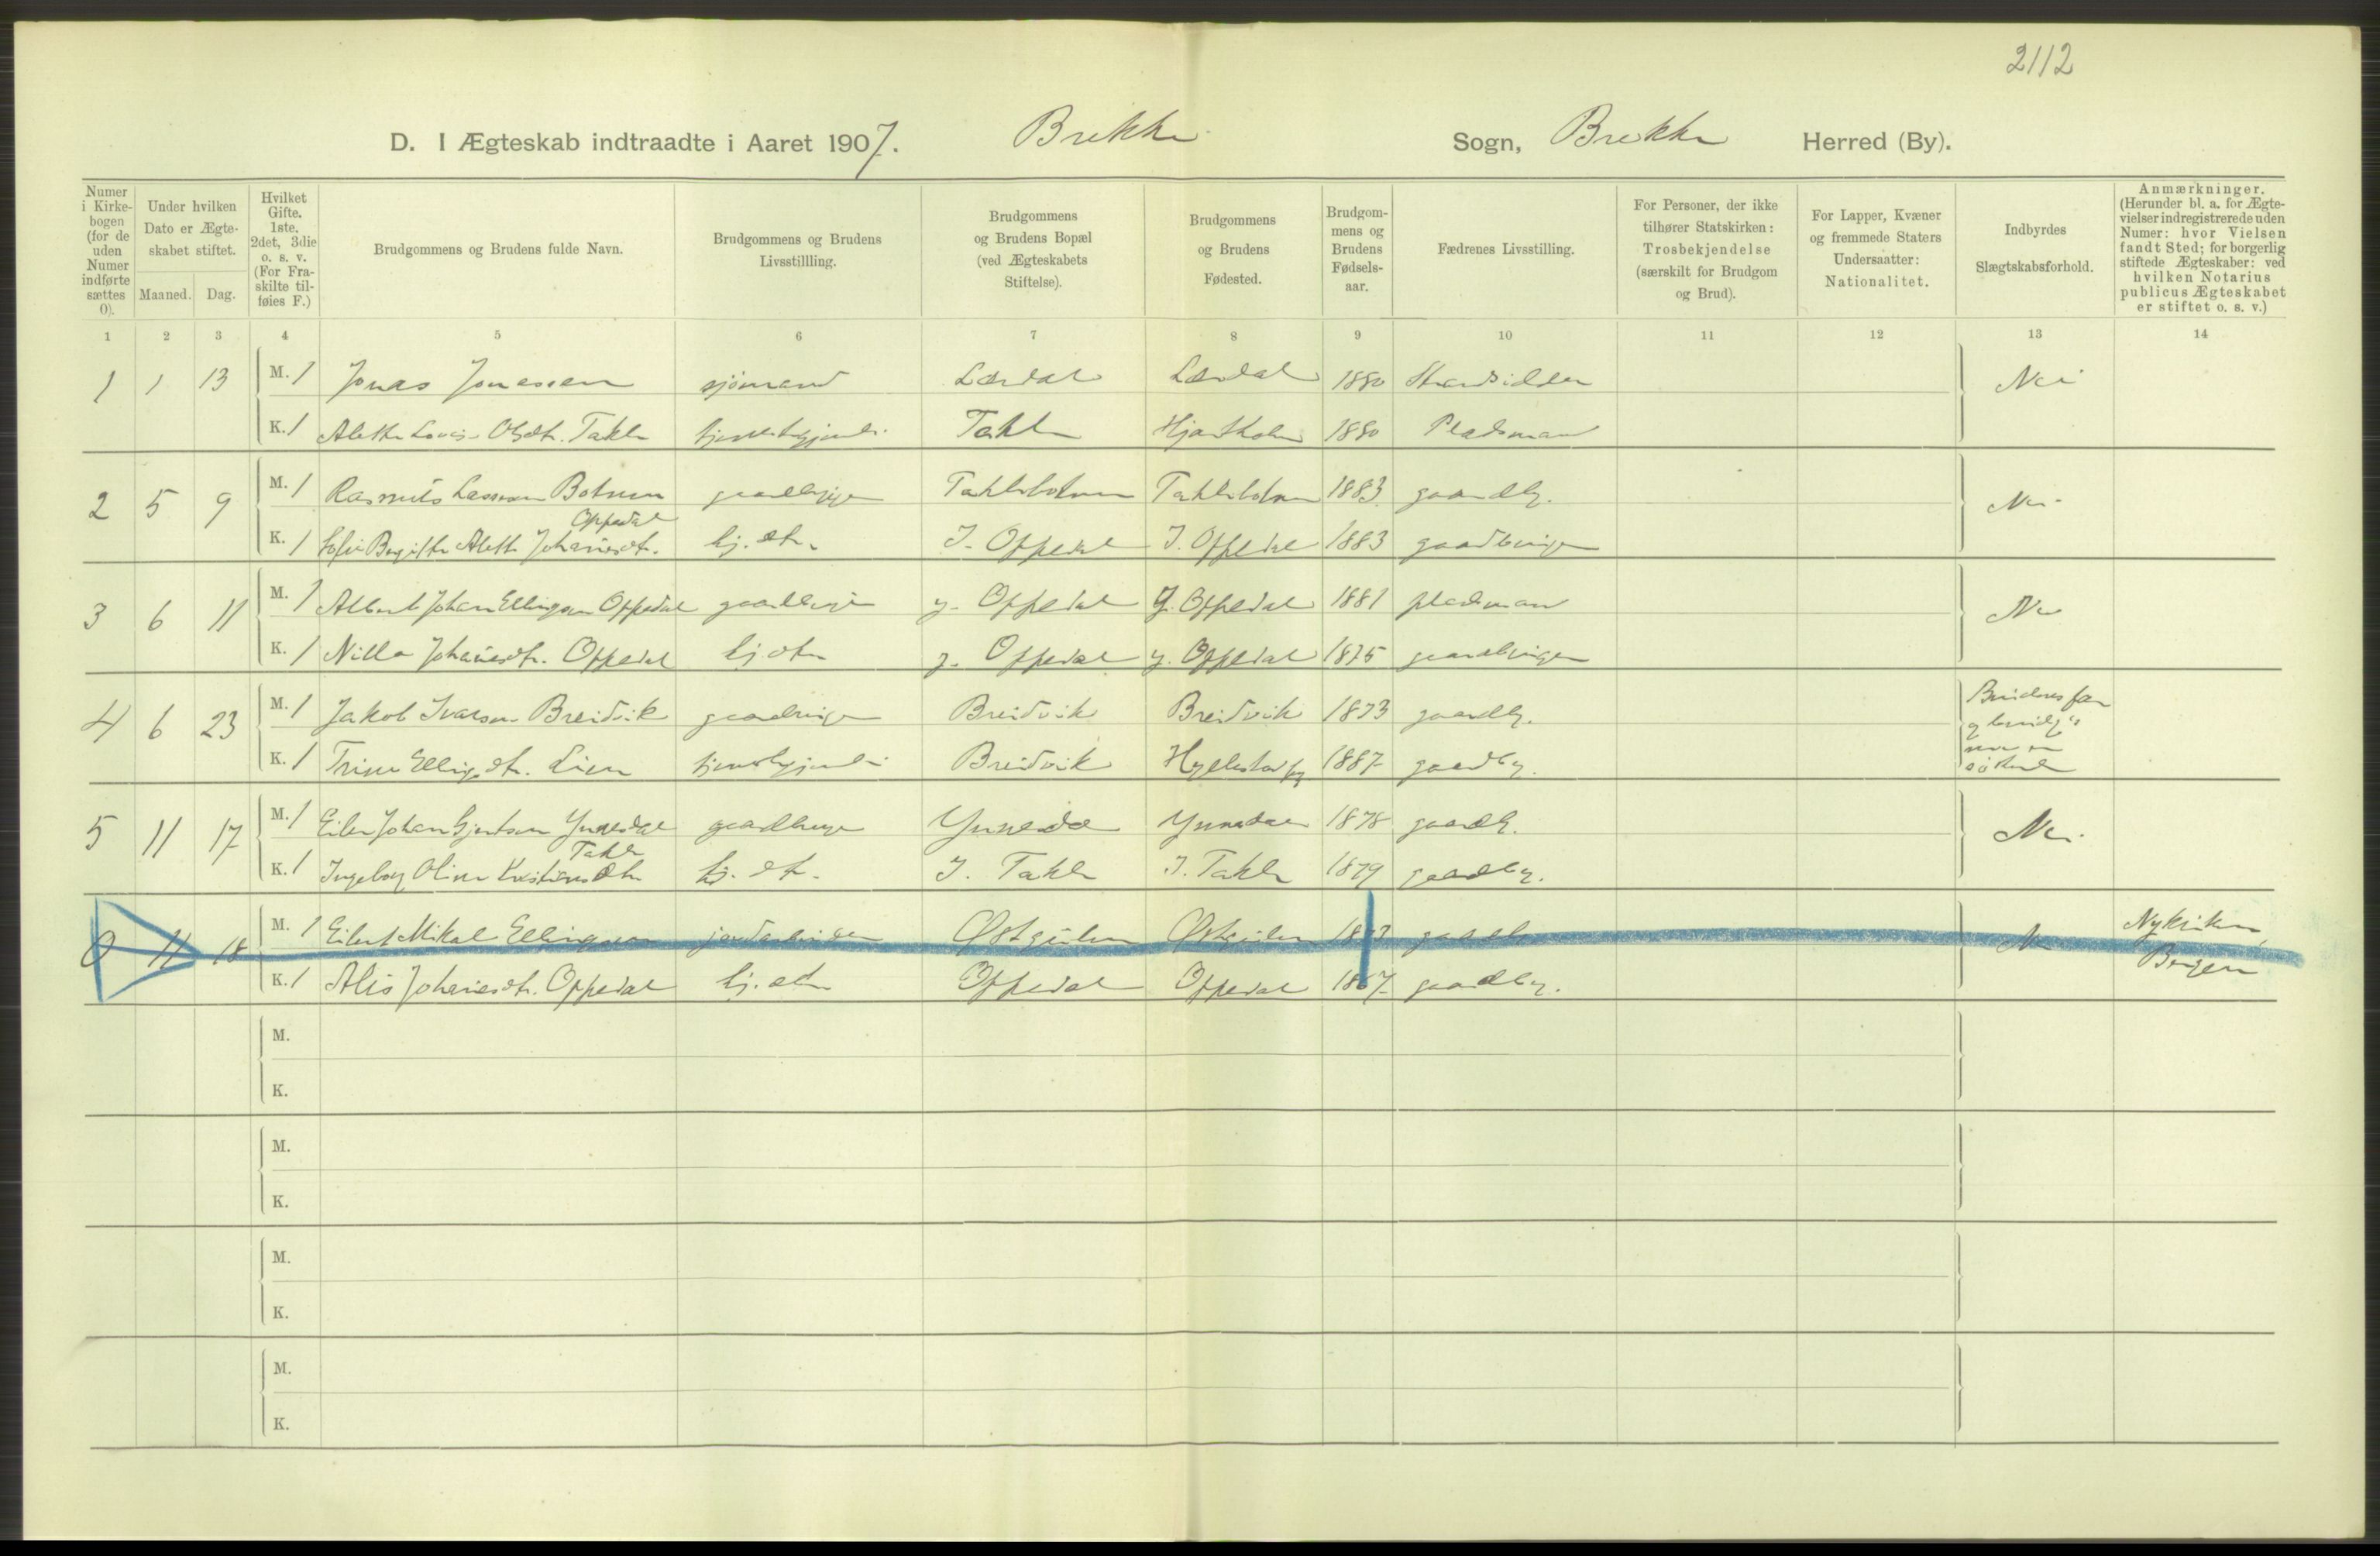 2112
D. I Ægteskab indtraadte i Aaret 1907. Brekke Sogn, Brekke Herred (By).
Numer i Kirke-bogen (for de uden Numer indførte sættes 0).
Under hvilken Dato er Ægte-skabet stiftet.
Maaned. Dag.
Hvilket Gifte. 1ste, 2det, 3die o. s. v. (For Fra-skilte til-føies F.)
Brudgommens og Brudens fulde Navn.
Brudgommens og Brudens Livsstillling.
Brudgommens og Brudens Bopæl (ved Ægteskabets Stiftelse).
Brudgommens og Brudens Fødested.
Brudgom-mens og Brudens Fødsels-aar.
Fædrenes Livsstilling.
For Personer, der ikke tilhører Statskirken: Trosbekjendelse (særskilt for Brudgom og Brud).
For Lapper, Kvæner og fremmede Staters Undersaatter: Nationalitet.
Indbyrdes Slægtskabsforhold.
Anmærkninger. (Herunder bl. a. for Ægte-vielser indregistrerede uden Numer: hvor Vielsen fandt Sted; for borgerlig stiftede Ægteskaber: ved hvilken Notarius publicus Ægteskabet er stiftet o. s. v.)
1 2 3 4 5 6 7 8 9 10 11 12 13 14
1 1 13 M. 1 Jonas Jonassen sjömand Lærdal Lærdal 1880 Strandsidder Nei
K. 1 Alethe Lovise Olsdtr. Takle Takle Hjartholm 1880 Pladsmand
2 5 9 M. 1 Rasmus Lassesen Botnen gaardbruger Taklebotnen Taklebotnen 1883 gaardbr. Nei
Oppedal
K. 1 Sofie Birgithe Aleth Johanesdtr. hj. dtr. I. Oppedal I. Oppedal 1883 gaardbruger
3 6 11 M. 1 Albert Johan Ellingsen Oppedal gaardbruger y. Oppedal y. Oppedal 1881 pladsmand Nei
K. 1 Nilla Johanesdtr. Oppedal hj dtr y. Oppedal y. Oppedal 1875 gaardbruger
4 6 23 M. 1 Jakob Ivarson Breidvik gaardbruger Breidvik Breidvik 1873 gaardbr. Brudens far
K. 1 Trine Ellingsdtr. Lien Breidvik Hyllestad 1887 gaardbr.
5 11 17 M. 1 Eiler Johan Gjertsen Ynnesdal gaardbruger Ynnesdal Ynnesdal 1878 gaardb. Nei
Takle
K. 1 Ingeborg Oline Kristiansdtr hj. dt. I. Takle I. Takle 1879 gaardbr.
0 11 18 M. 1 Eilert Mikal Ellingsen jordarbeider Østgulen Østgulen gaardb Nei Nykirken,
Bergen
K. 1 Alis Johanesdtr. Oppedal hj. dtr Oppedal Oppedal 1867 gaardbr.
M.
K.
M.
K.
M.
K.
M.
K.